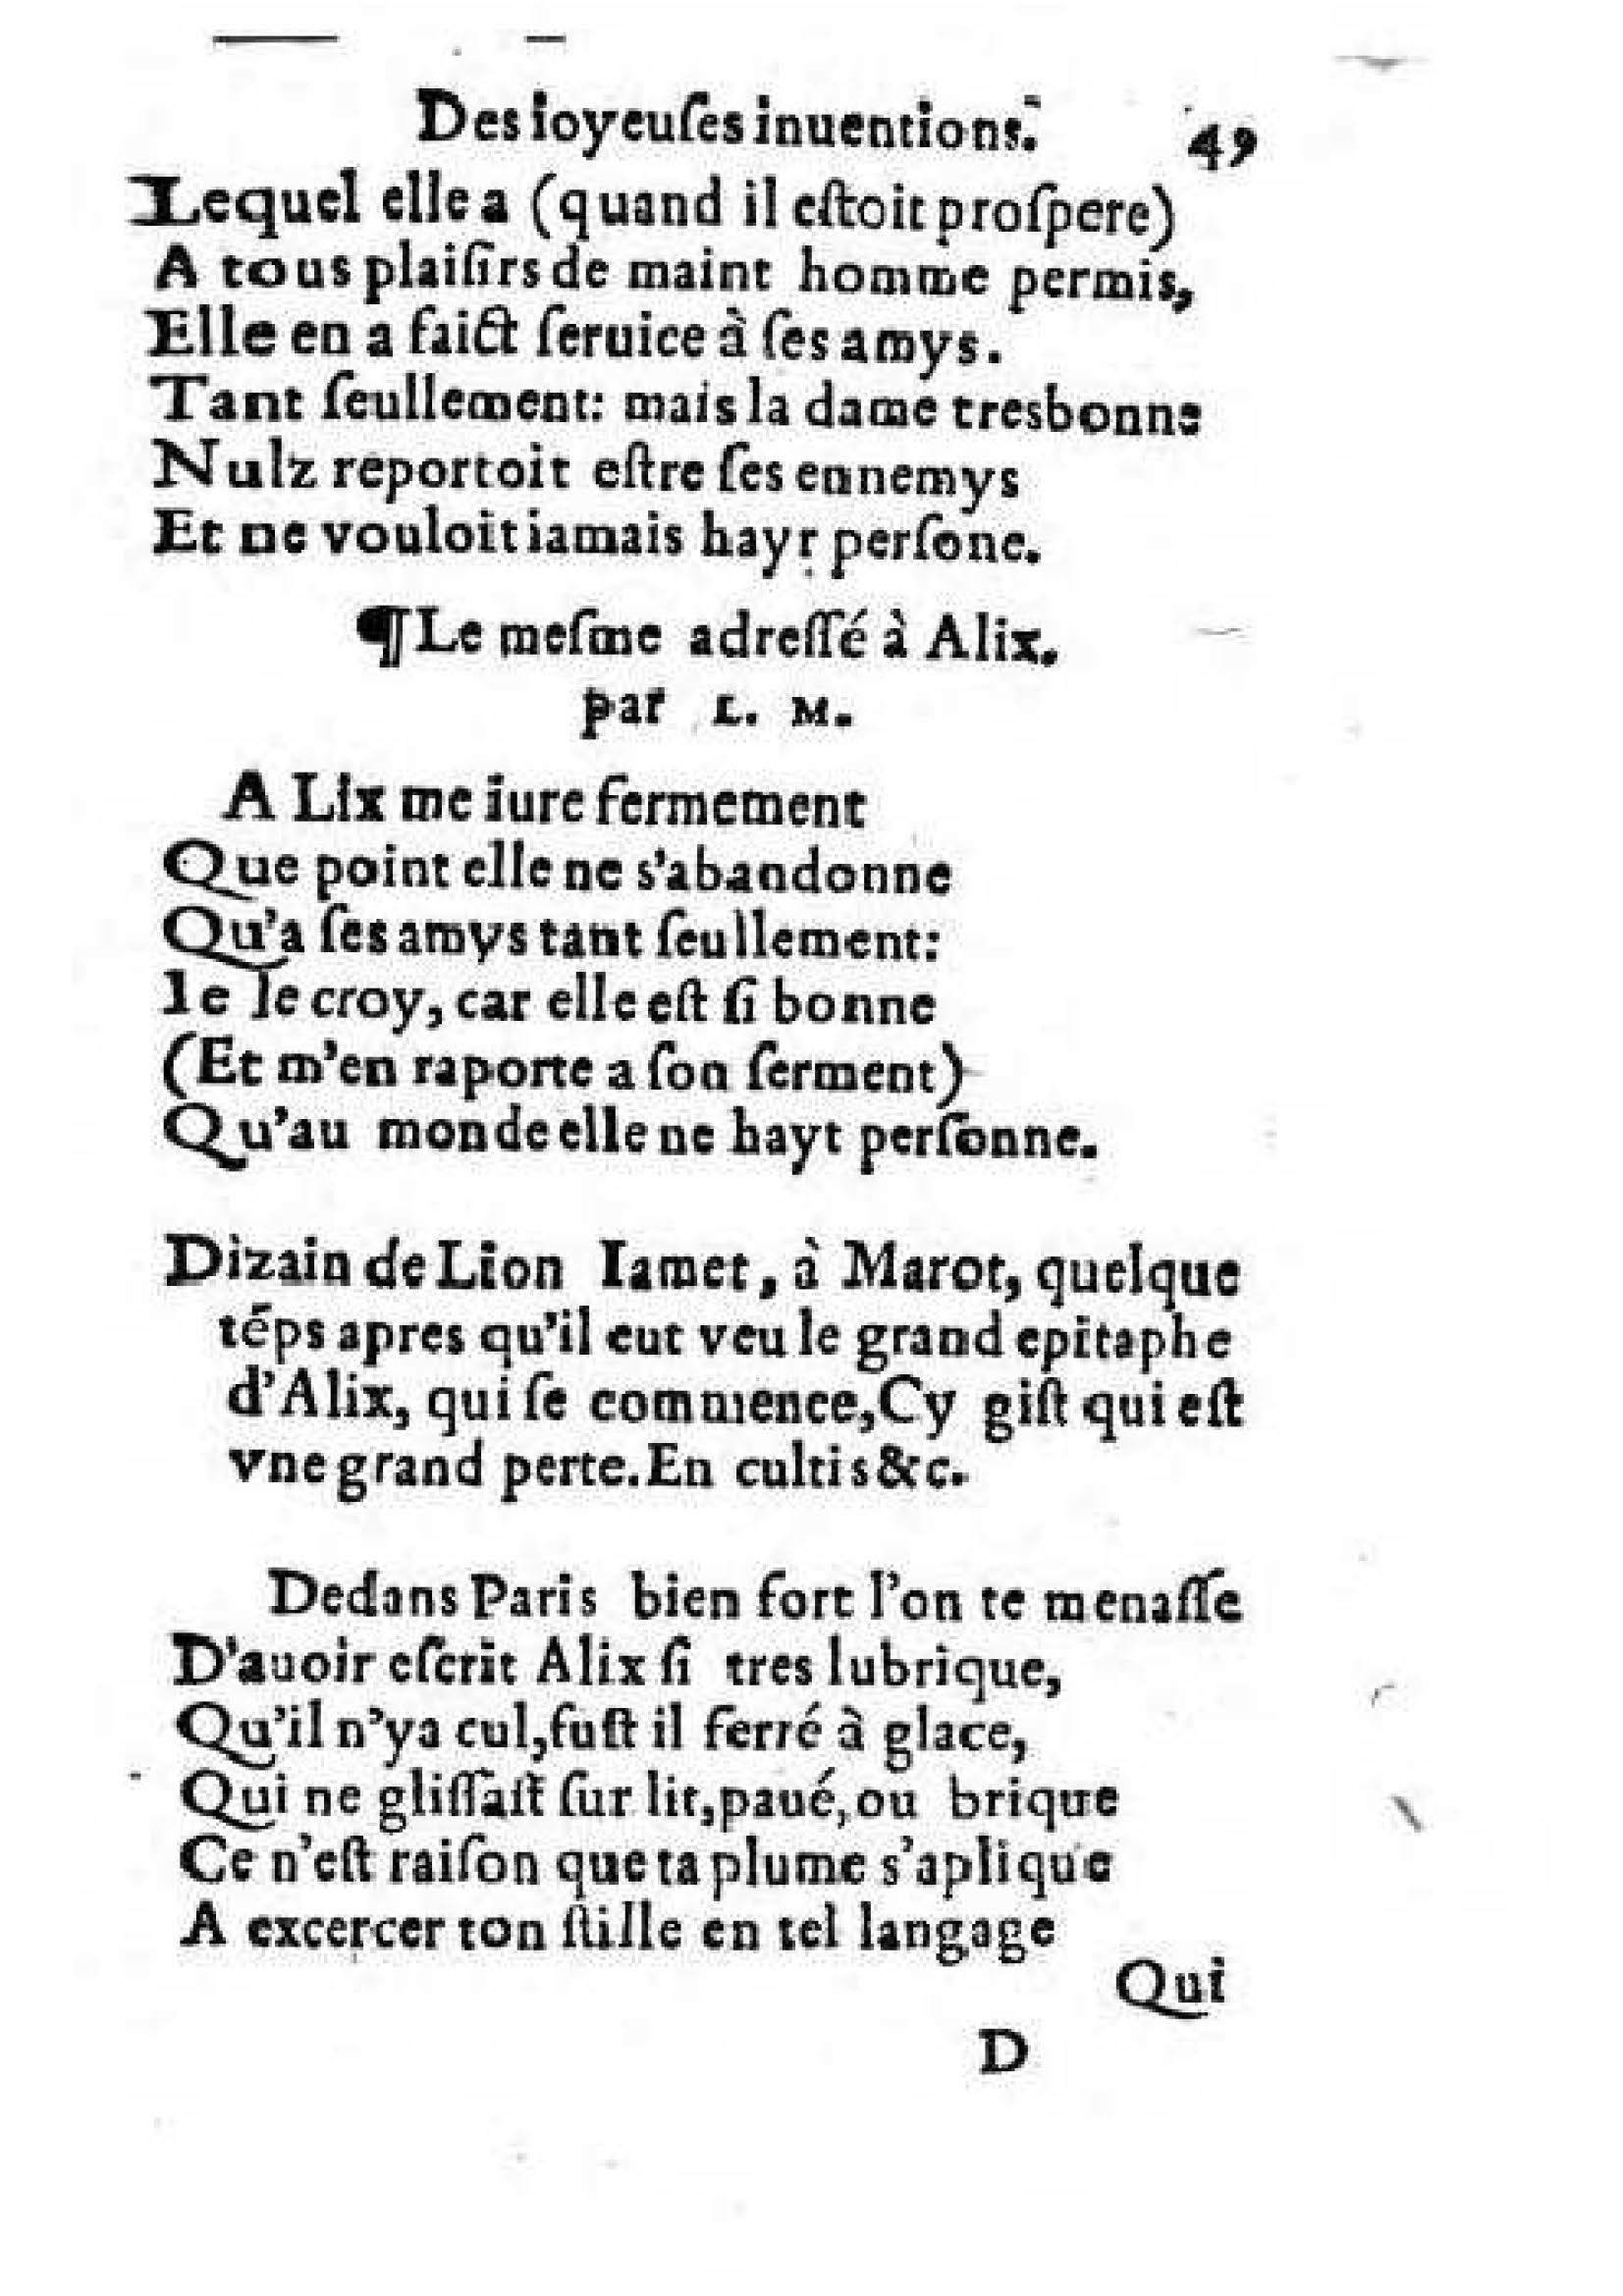 Des ioyeuſes inuentions. 49
Lequel elle a (quand il eſtoit proſpere)
A tous plaiſirs de maint homme permis,
Elle en a faict ſeruice à ſes amys.
Tant ſeullement: mais la dame tresbonne
Nulz reportoit eſtre ſes ennemys
Et ne vouloit iamais hayr perſone.
¶Le meſme adreſſé à Alix.
par L. M.
A Lix me iure fermement
Que point elle ne s'abandonne
Qu'a ſes amys tant ſeullement:
Ie le croy, car elle eſt ſi bonne
(Et m'en raporte a ſon ſerment)
Qu'au monde elle ne hayt perſonne.
Dizain de Lion Iamet, à Marot, quelque
téps apres qu'il eut veu le grand epitaphe
d'Alix, qui ſe commence, Cy giſt qui eſt
vne grand perte. En cultis &c.
Dedans Paris bien fort l'on te menaſſe
D'auoir eſcrit Alix ſi tres lubrique,
Qu'il n'ya cul, fuſt il ferré à glace,
Qui ne gliſſaſt ſur lit, paué, ou brique
Ce n'eſt raiſon que ta plume s'aplique
A excercer ton ſtille en tel langage
Qui
D